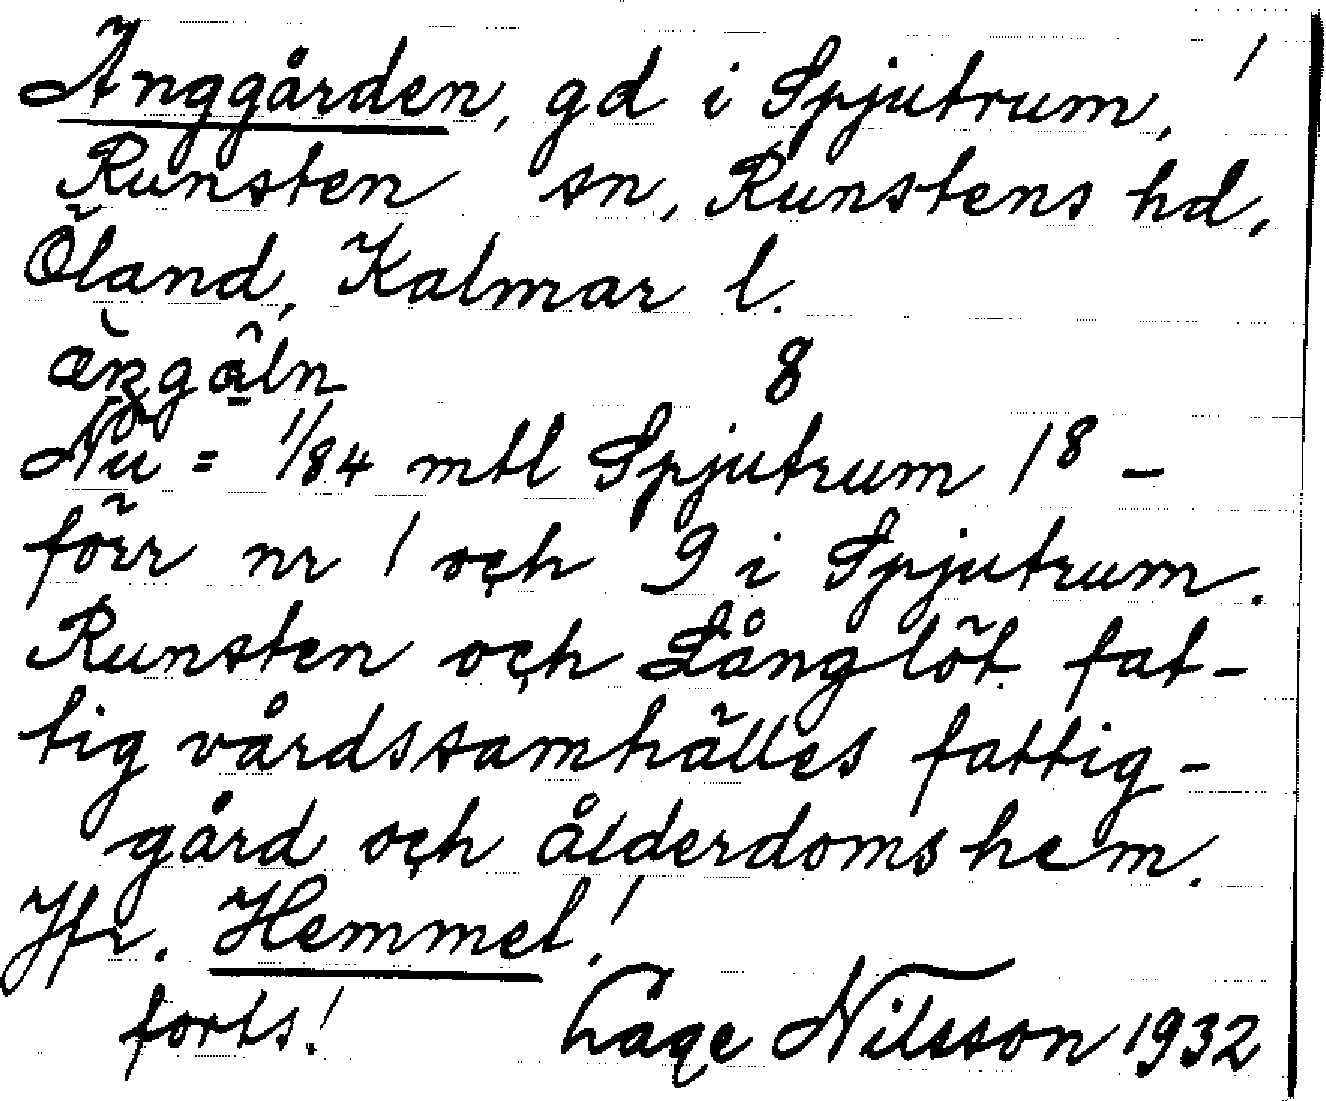 Änggården, gd i Spjutrum, /
Runsten sn, Runstens hd,
Öland, Kalmar l.
8
Nu = 1/84 mtl Spjutrum 1⁸ –
förr nr 1 och 9 i Spjutrum.
Runsten och Långlöt fat-
tigvårdssamhälles fattig-
gård och ålderdomshem.
Jfr. Hemmet!
forts! Lage Nilsson 1932